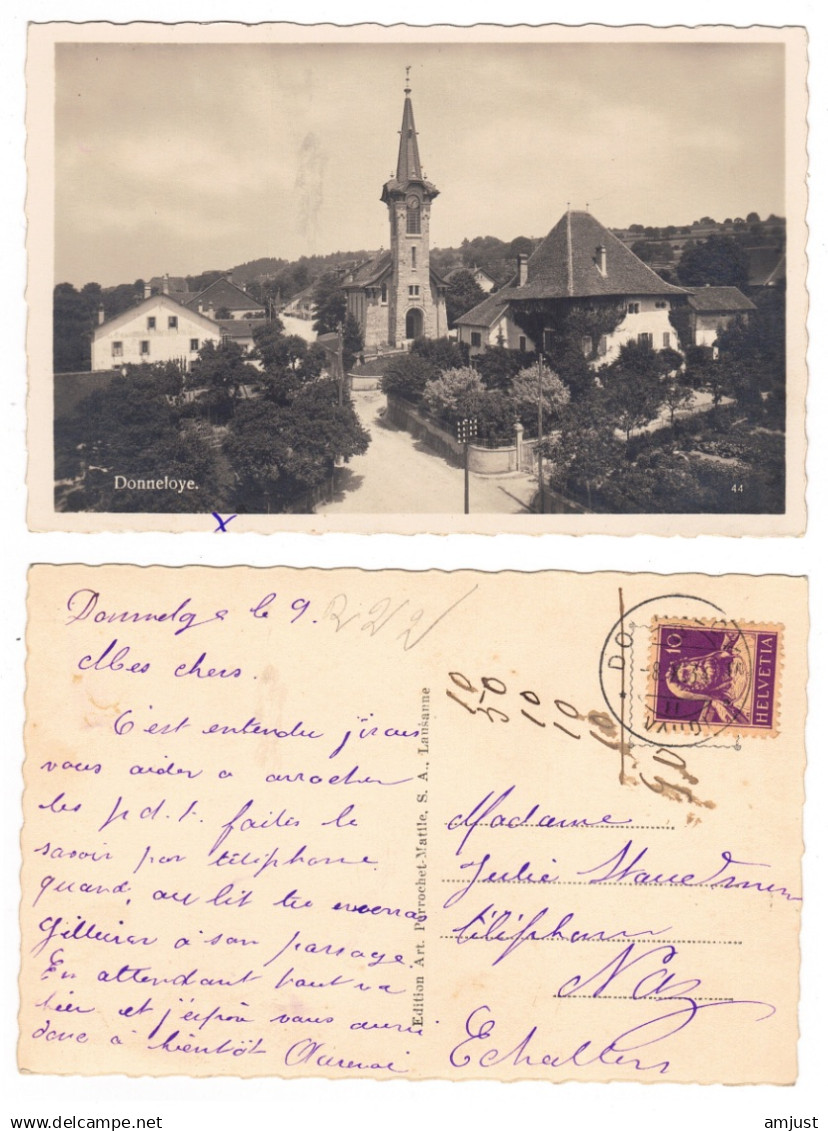 Donneloye.
44
Donneloye le 9.
222
Mes chers.
C'est entendu j'irais
vous aider a arracher
les p.d.t. faites le
savoir par téléphone
quand, au lit tu
à son passage.
En attendant tout va
bien et j'espère vous aussi
donc à bientôt
Edition Art. Perrochet-Matile, S. A., Lausanne
10
50
10
10
10
10
HELVETIA
Madame
Julie
téléphone
Naz
Echallens
amjust